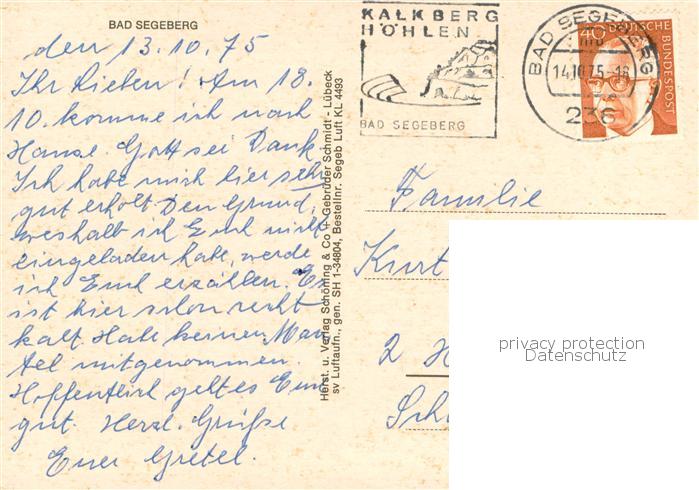 BAD SEGEBERG
den 13.10.75
Ihr Lieben! Am 18.
10. komme ich nach
Hause. Gott sei Dank.
Ich habe mich hier sehr
gut erholt. Den Grund,
weshalb ich Euch nicht
eingeladen habe, werde
ich Euch erzählen. Es
ist hier schon recht
kalt. Habe keinen Man
tel mitgenommen.
Hoffentlich geht es Euch
gut. Herzl. Grüße
Euer Gretel.
Herst. u. Verlag Schöning & Co + Gebrüder Schmidt - Lübeck
sv Luftaufn., gen. SH 1-34804, Bestellnr. Segeb Luft KL 4493
KALKBERG
HÖHLEN
BAD SEGEBERG
BAD SEGEBERG
14.10.75-16
236
40
DEUTSCHE
BUNDESPOST
Familie
Kurt
2 H
Sch
privacy protection
Datenschutz